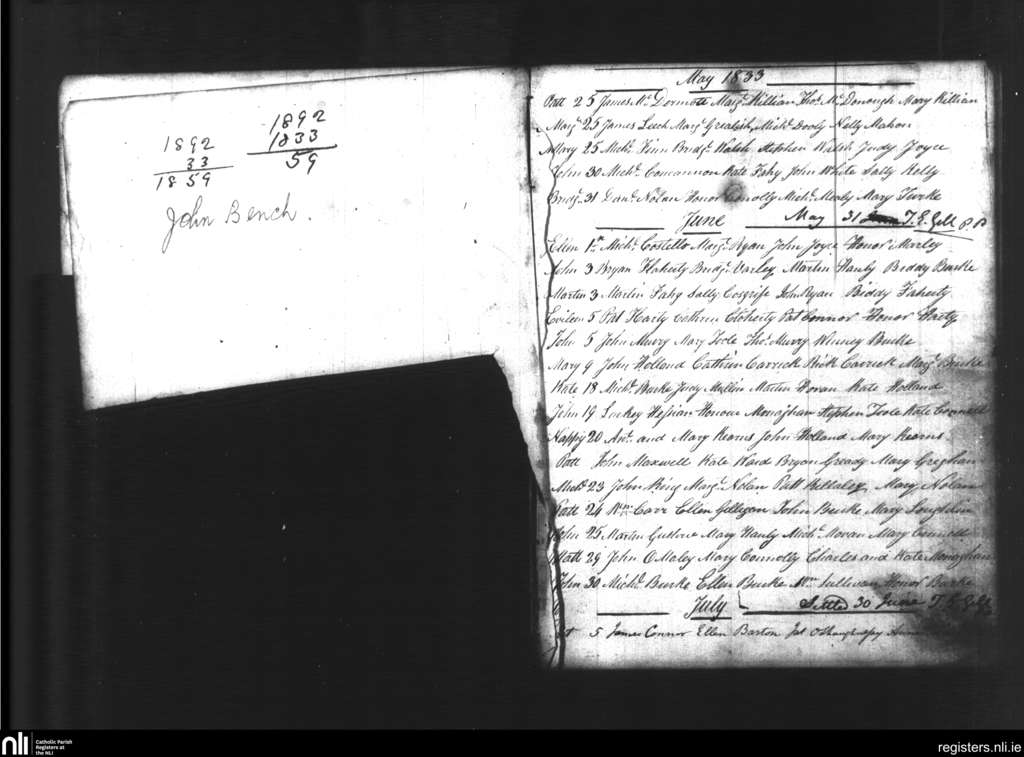 1892
33
1859
1892
1833
59
John Bench.
May 1833
Patt 25 James Mc Dermott Margt Killian Thos Mc Donough Mary Killian
Margt 25 James Leech Margt Grealish Michl Dooly Nelly Mahon
Mary 25 Michl Finn Bridgt Walsh Stephen Walsh Judy Joyce
John 30 Michl Concannon Kate Fahy John White Sally Kelly
Bridgt 31 Danl Nolan Honor Conolly Michl Mealy Mary Burke
June May 31 T. E. Gill P P
Ellen 1st Michl Costello Margt Ryan John Joyce Honor
John 3 Bryan Flaherty Bridgt Varley Martin Hanly Biddy Burke
Martin 3 Martin Fahy Sally Cosgrife John Ryan Biddy Faherty
5 Pat Harty Cathrin Cloherty Pat Connor Honor Harty
John 5 John Murry Mary Toole Thos Murry Winney Burke
Mary 9 John Holland Cathrin Carrick Rick Carrick Margt Burke
Kate 18 Michl Burke Judy Mullin Martin Horan Kate Holland
John 19 Hession Honour Monaghan Stephen Toole Kate Connell
Nappy 20 Ant. and Mary Kearns John Holland Mary Kearns
Patt John Maxwell Kate Ward Bryan Gready Mary Greghan
Michl 23 John King Margt Nolan Patt Mary Nolan
Patt 24 Wm Carr Ellen Gilligan John Burke Mary
John 25 Martin Guthrie Mary Hanly Michl Mary Connell
Matt 29 John O Maley Mary Connolly Charles and Kate Monaghan
John 30 Michl Burke Ellen Burke Wm Sullivan Honor Burke
July Settled 30 June T. E. Gill
5 James Connor Ellen Barton Jas O Shaughnessy
nli Catholic Parish
Registers at
the NLI
registers.nli.ie